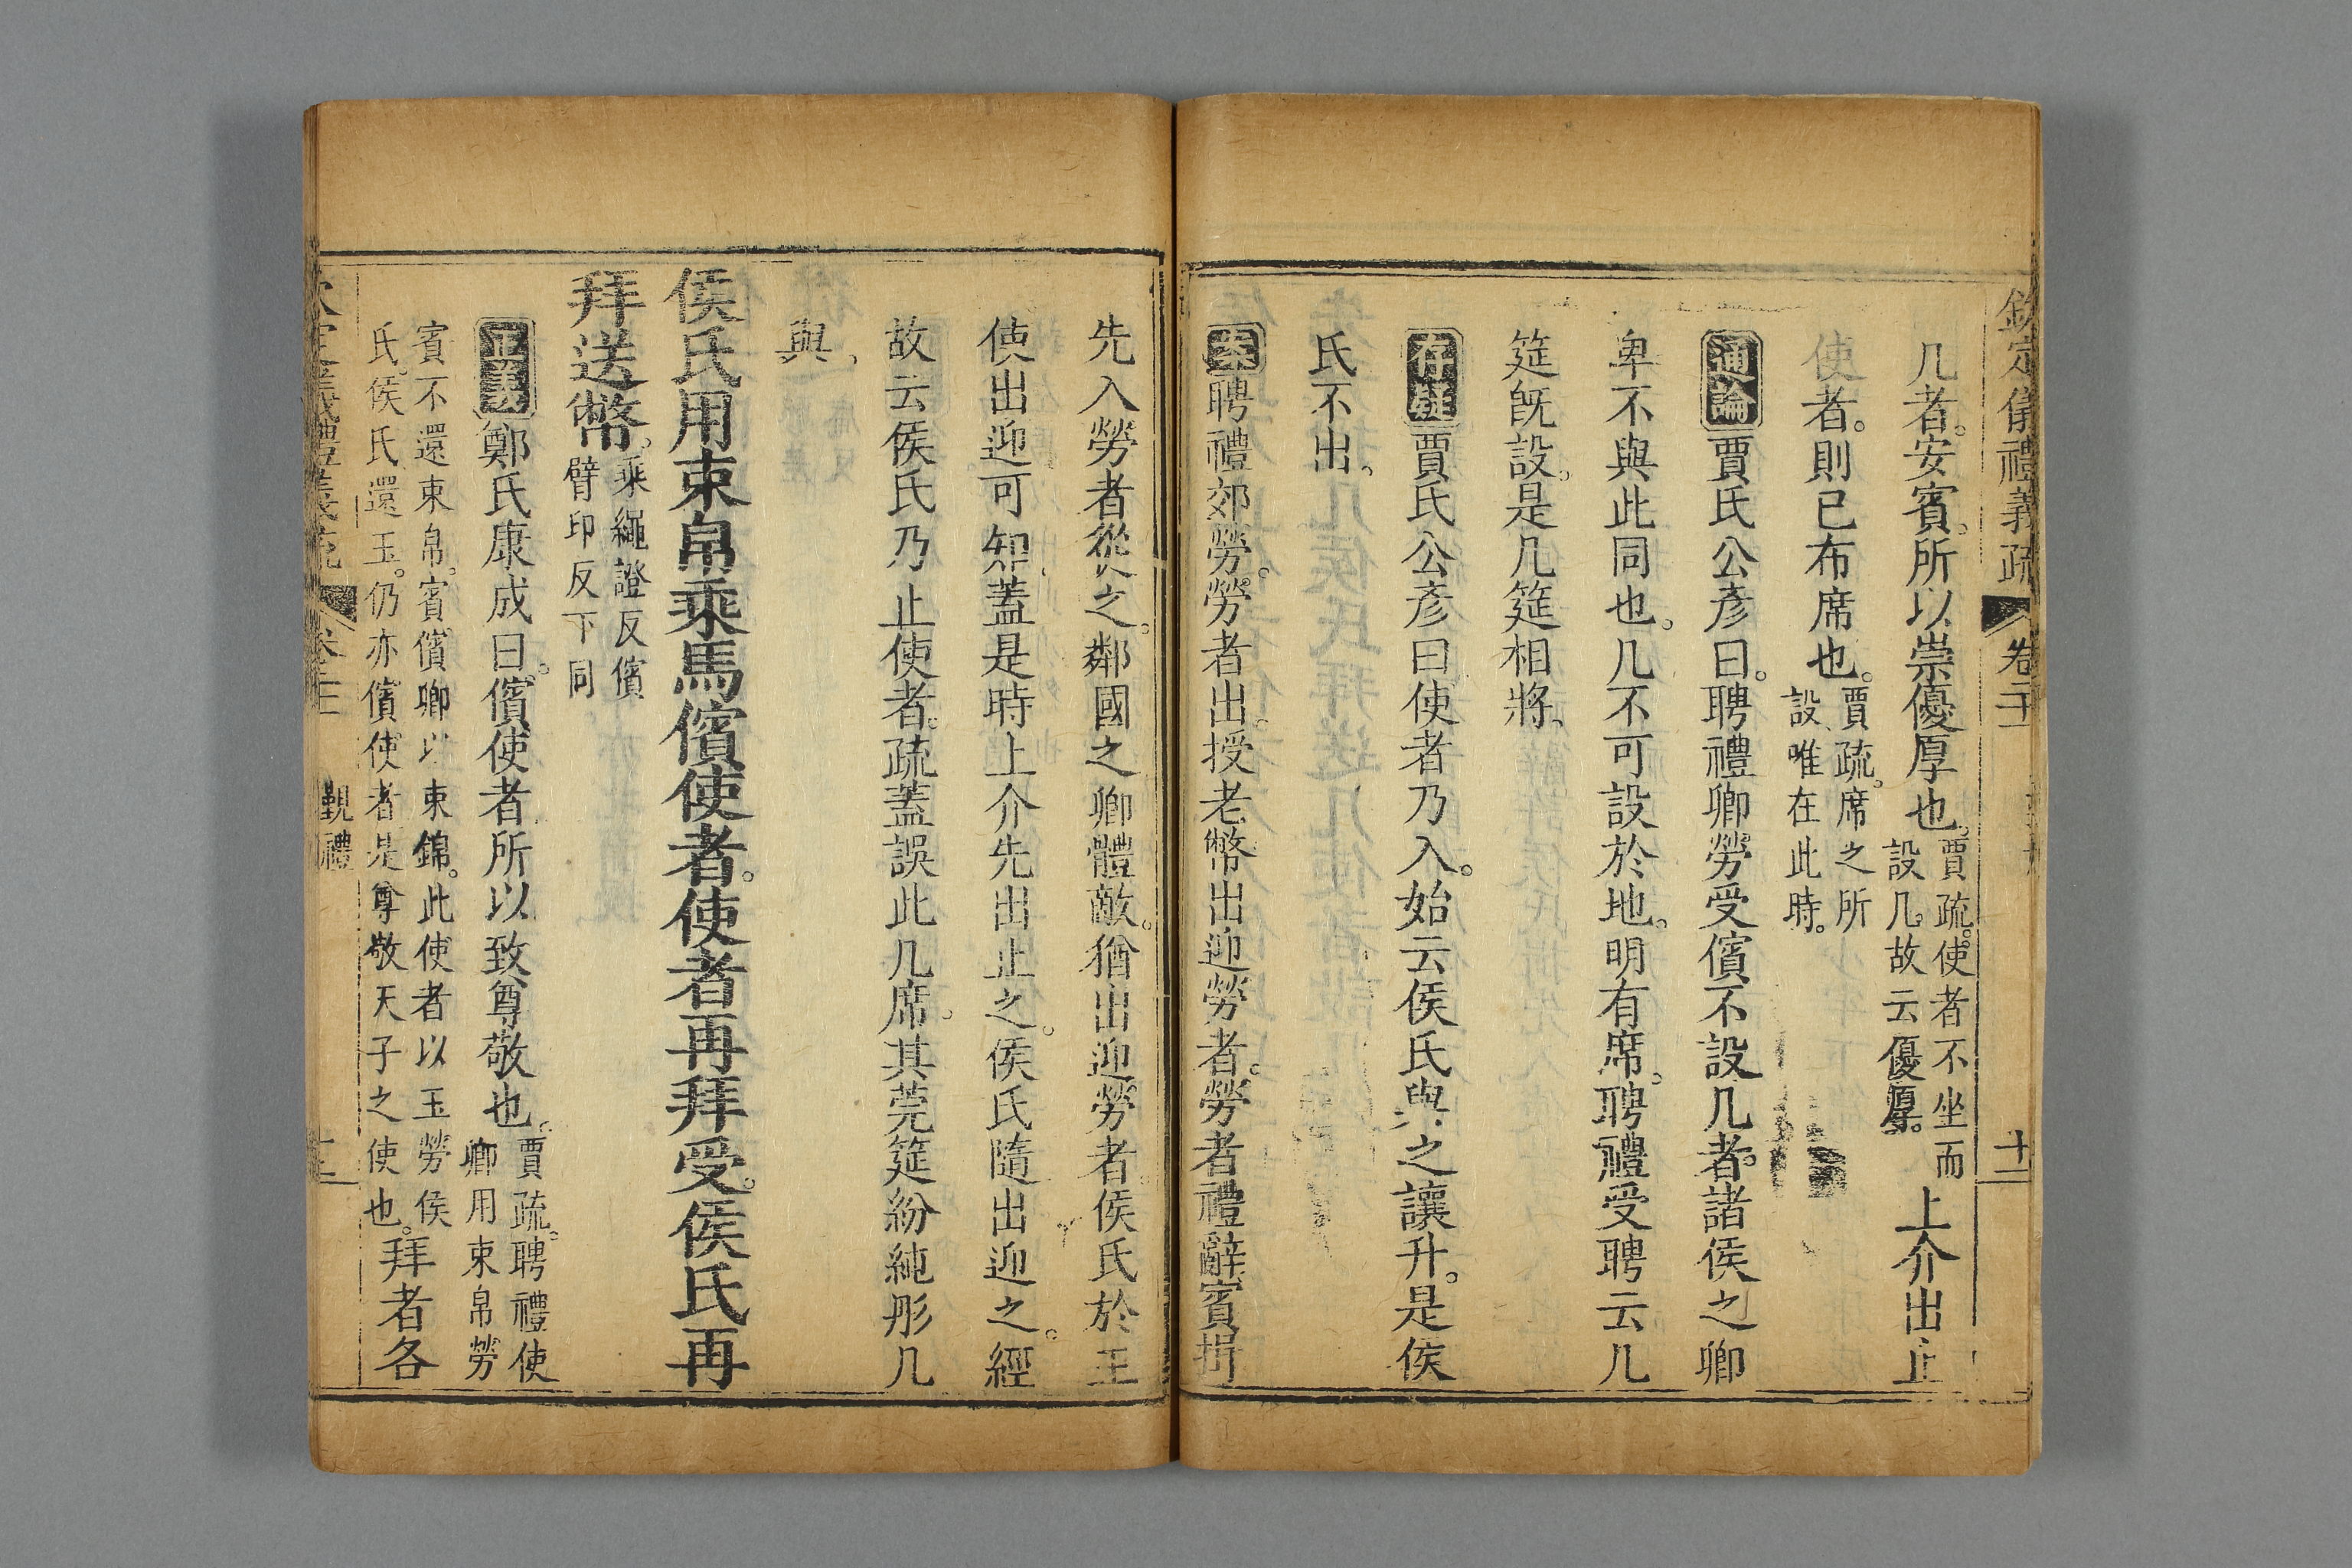 欽定儀禮義疏 卷二十 十二
几者。安賓。所以崇優厚也。賈疏。使者不坐而設几。故云優厚。上介出止
使者。則已布席也。賈疏。席之所設、唯在此時。
通論賈氏公彥曰。聘禮卿勞受儐不設几者。諸侯之卿
卑不與此同也。几不可設於地。明有席。聘禮受聘云几
筵旣設。是几筵相將。
存疑賈氏公彥曰使者乃入。始云侯氏與之讓升。是侯
氏不出。
案聘禮郊勞。勞者出。授老幣出迎勞者。勞者禮辭賓揖
先入勞者從之。鄰國之卿體敵。猶出迎勞者。侯氏於王
使出迎可知蓋是時上介先出止之。侯氏隨出迎之。經
故云侯氏乃止使者。疏蓋誤此几席。其莞筵紛純彤几
與。
侯氏用束帛乘馬儐使者。使者再拜受。侯氏再
拜送幣。乘繩證反儐臂印反下同
正義鄭氏康成曰。儐使者所以致尊敬也。賈疏。聘禮使卿用束帛勞
賓不還束帛。賓儐卿以束錦。此使者以玉勞侯氏。侯氏還玉。仍亦儐使者是尊敬天子之使也。拜者各
覲禮